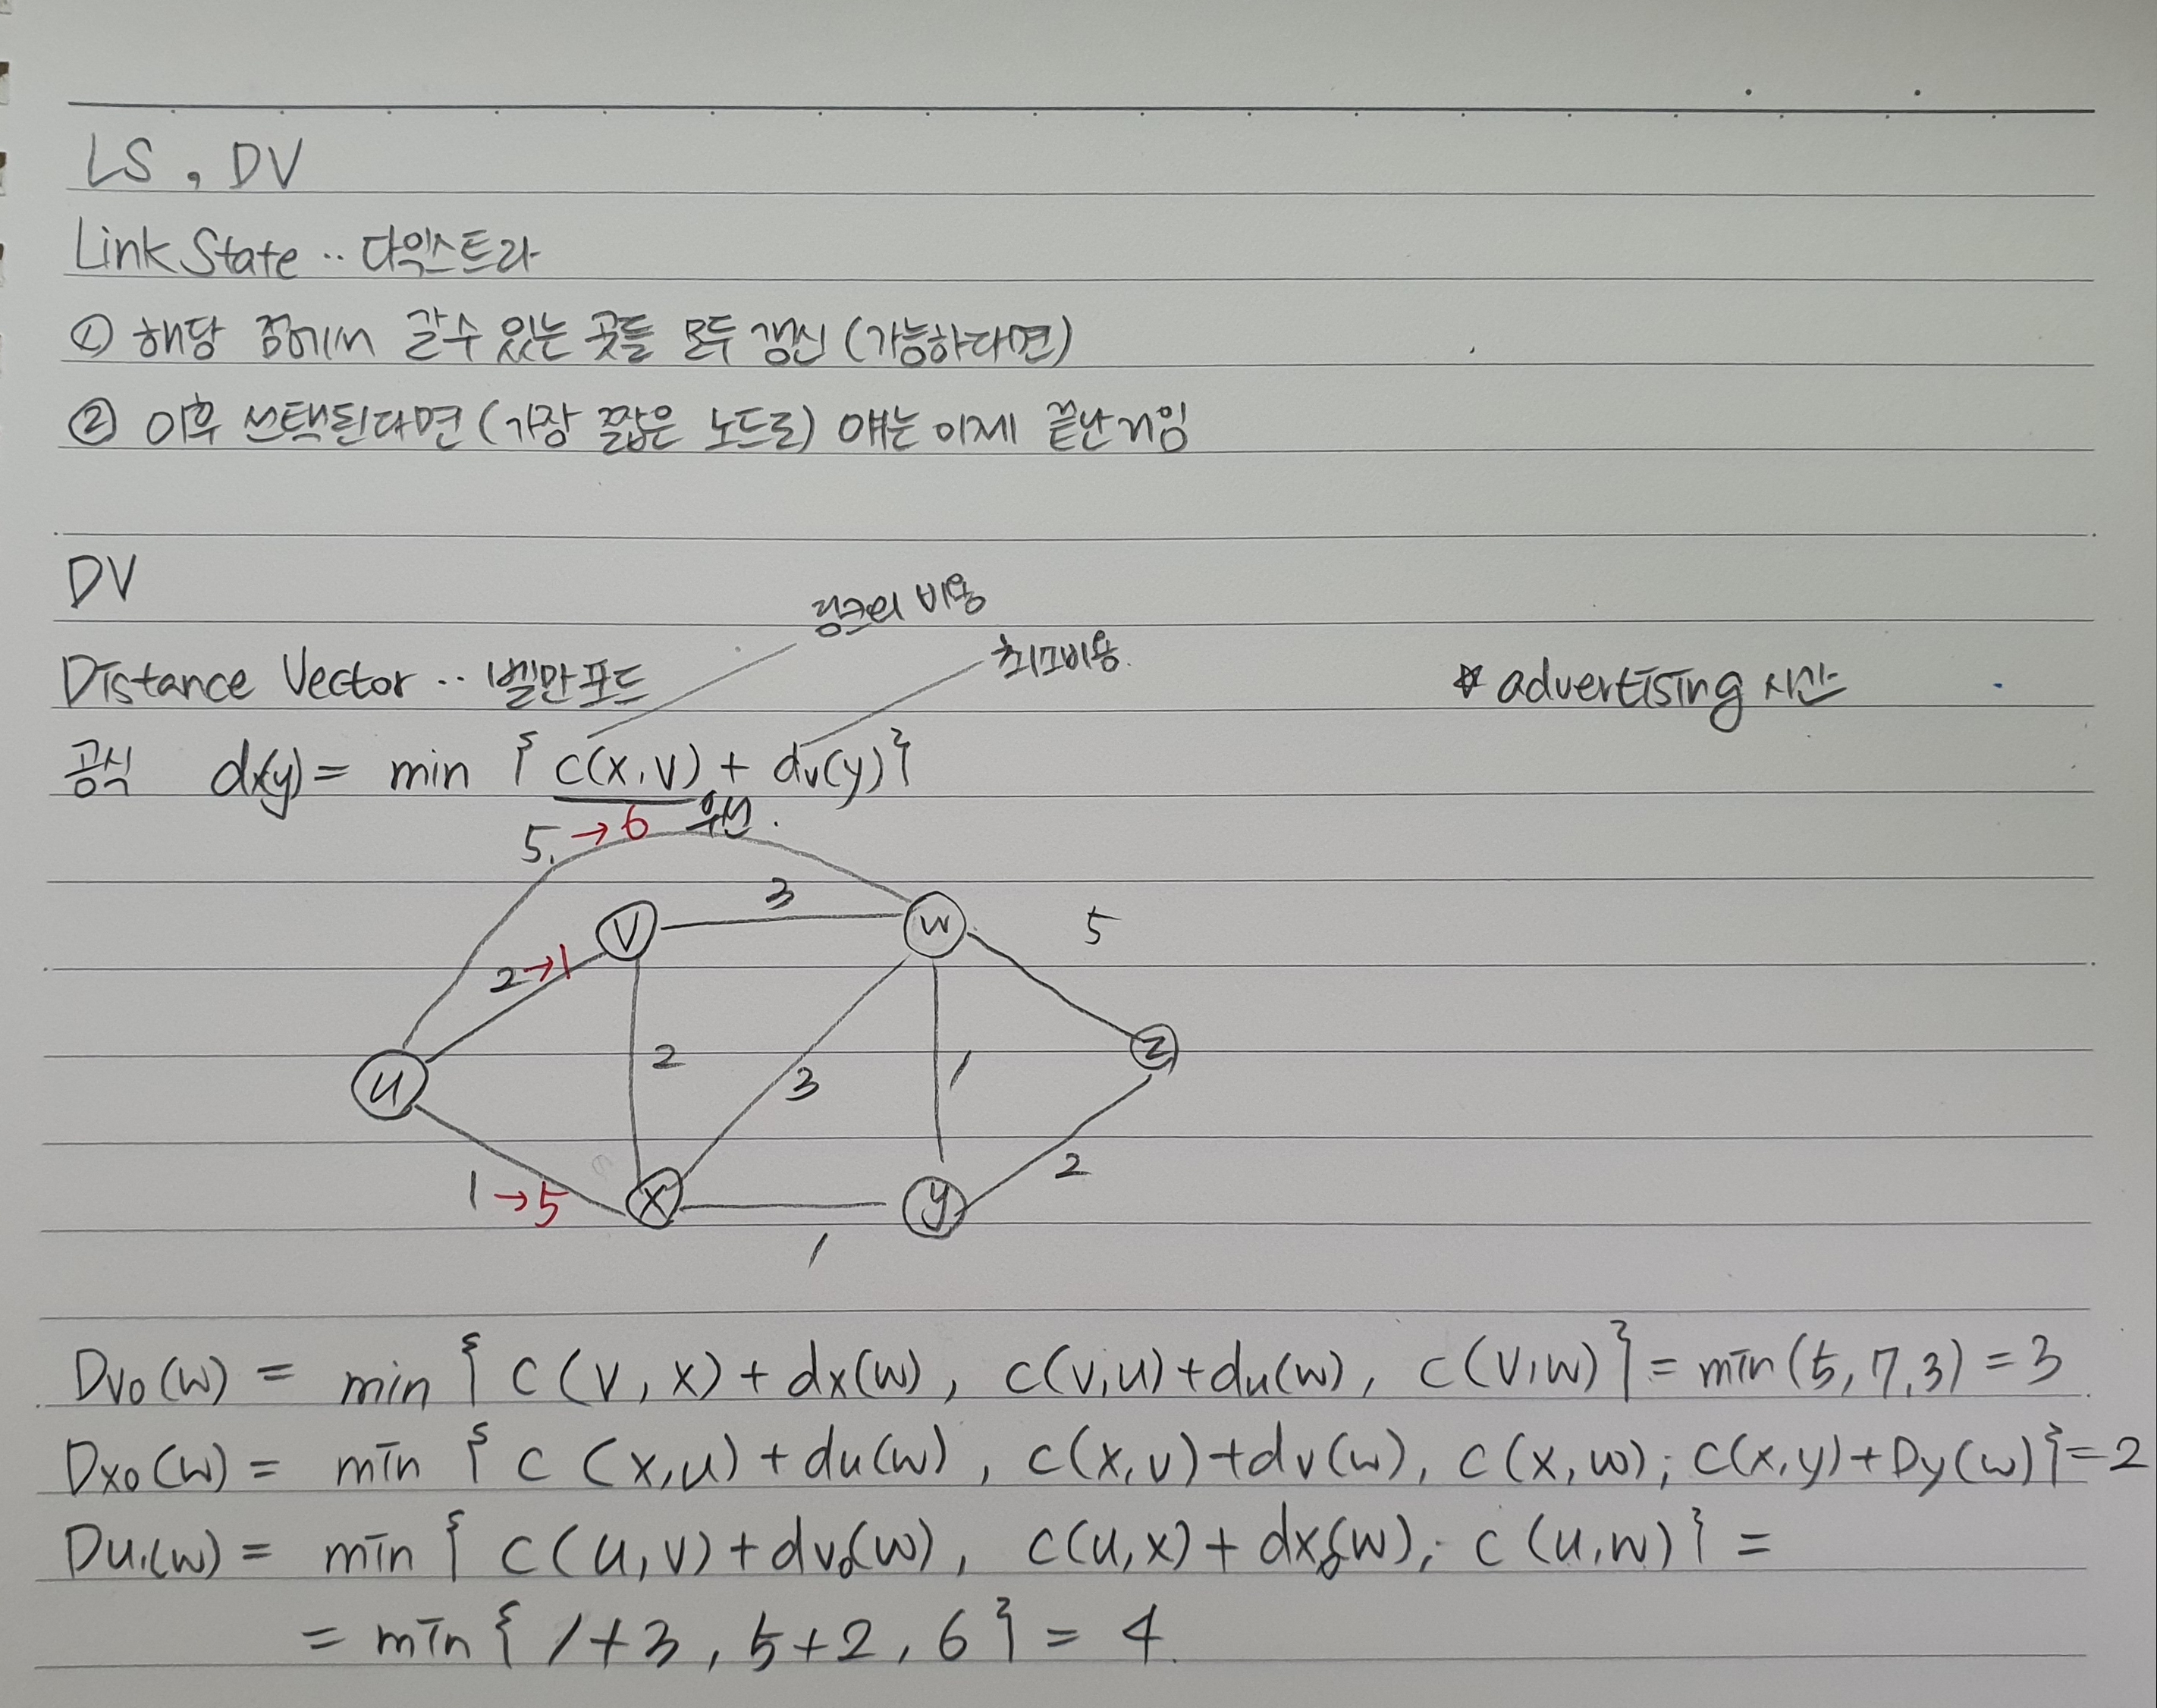 LS, DV
Link State .. 다익스트라
① 해당 점에서 갈수 있는 곳들 모두 갱신 (가능하다면)
② 이후 선택된다면 (가장 짧은 노드로) 얘는 이제 끝난거임
DV
링크의 비용
최소비용.
Distance Vector .. 벨만포드
* advertising 시간
공식 dx(y) = min { c(x,v) + dv(y) }
5. → 6
3
V
W
5
2 → 1
2
3
1
Z
U
2
1 → 5
X
y
1
Dv0(w) = min { c(v,x) + dx(w), c(v,u) + du(w), c(v,w) } = min(5,7,3) = 3
Dx0(w) = min { c(x,u) + du(w), c(x,v) + dv(w), c(x,w), c(x,y) + Dy(w) } = 2
Du1(w) = min { c(u,v) + dv0(w), c(u,x) + dx0(w), c(u,w) } =
= min { 1+3, 5+2, 6 } = 4.